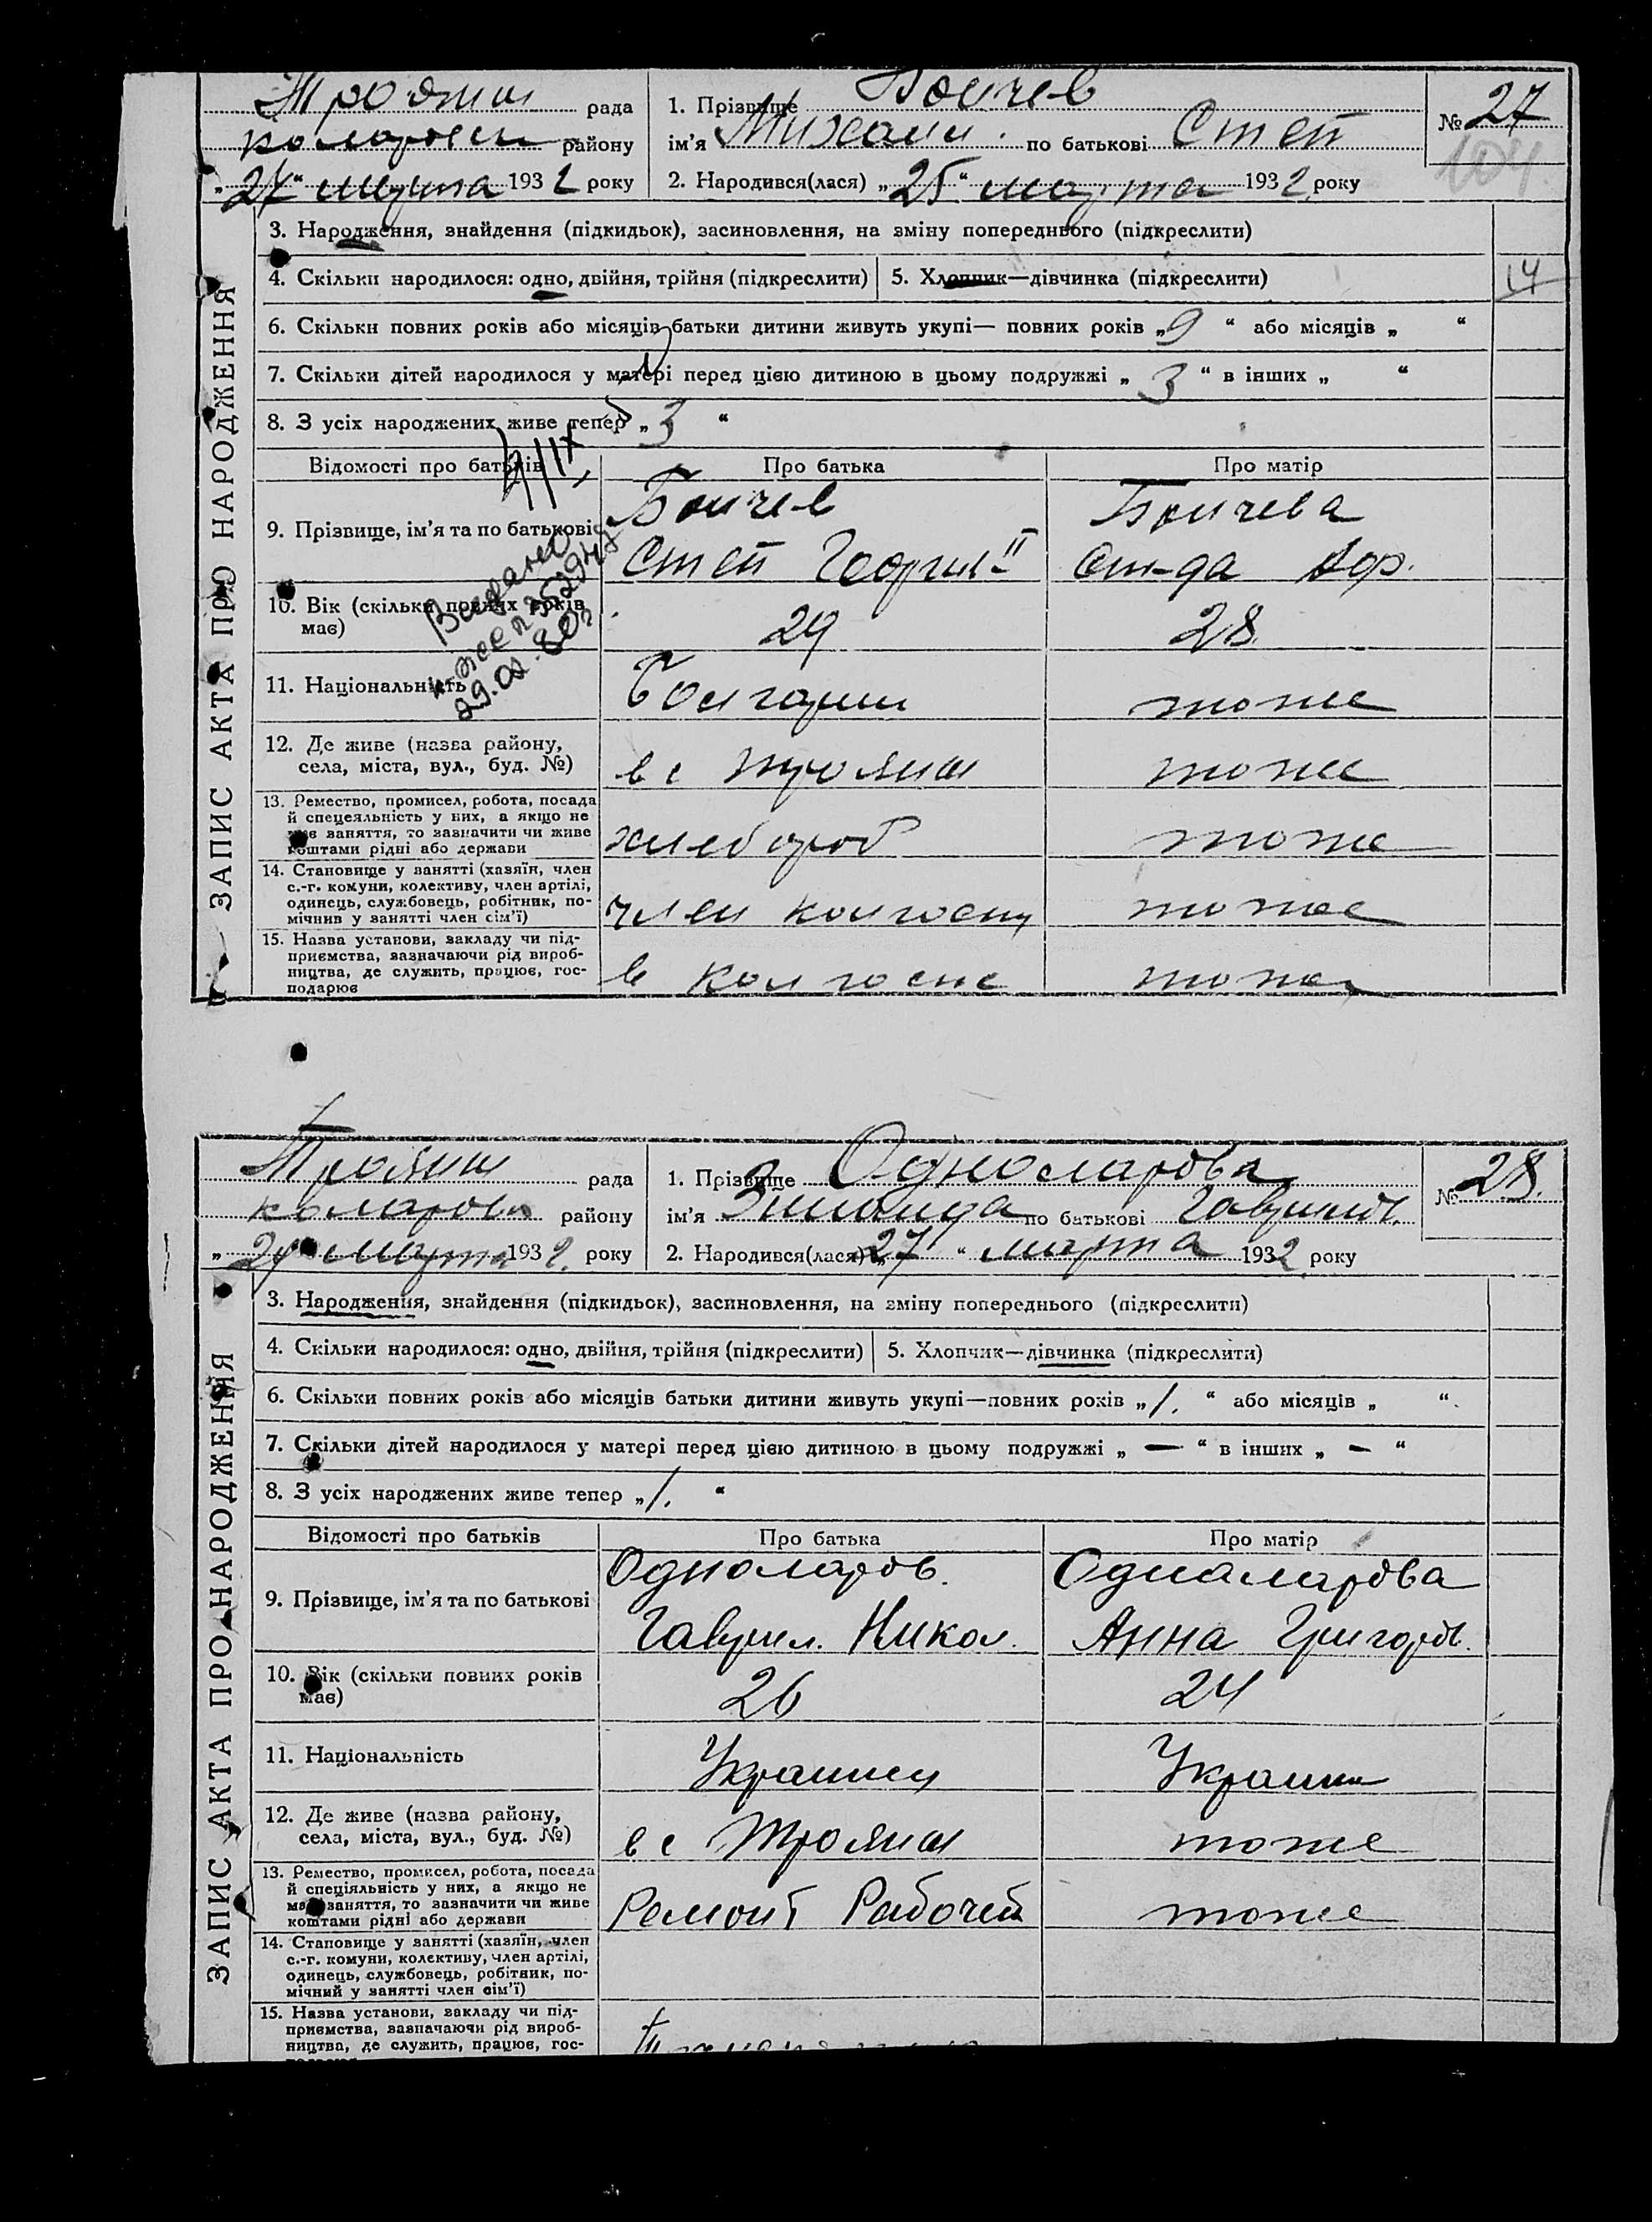 Троян рада
района
„27“ марта 1932 року
1. Прізвище Боичев
ім'я Михаил по батькові Степ
2. Народився(лася) „25“ марта 1932 року
№ 27
104
ЗАПИС АКТА ПРО НАРОДЖЕННЯ
3. Народження, знайдення (підкидьок), засиновлення, на зміну попереднього (підкреслити)
4. Скільки народилося: одно, двійня, трійня (підкреслити) 5. Хлопчик—дівчинка (підкреслити)
14
6. Скільки повних років або місяців батьки дитини живуть укупі— повних років „9“ або місяців „ “
7. Скільки дітей народилося у матері перед цією дитиною в цьому подружжі „3“ в інших „ “
8. З усіх народжених живе тепер „3“
Відомості про батьків Про батька Про матір
9. Прізвище, ім'я та по батькові
Боичев Боичева
Степ Георгие II
10. Вік (скільки повних років
має)
29 28
Выдано
29.01.80г
11. Національність Болгарин тоже
12. Де живе (назва району,
села, міста, вул., буд. №)
в с Троян тоже
13. Ремество, промисел, робота, посада
й спецеяльність у них, а якщо не
має заняття, то зазначити чи живе
коштами рідні або держави
хлебороб тоже
14. Становище у занятті (хазяїн, член
с.-г. комуни, колективу, член артілі,
одинець, службовець, робітник, по-
мічнив у занятті член сім'ї)
член колхоза тоже
15. Назва установи, закладу чи під-
приємства, зазначаючи рід вироб-
ництва, де служить, працює, гос-
подарює
в колхозе тоже
Троян рада
району
1932 року
1. Прізвище Одномарова
ім'я Зинаида по батькові Гаврилов.
2. Народився(лася) „27“ марта 1932 року
№ 28.
ЗАПИС АКТА ПРО НАРОДЖЕННЯ
3. Народження, знайдення (підкидьок), засиновлення, на зміну попереднього (підкреслити)
4. Скільки народилося: одно, двійня, трійня (підкреслити) 5. Хлопчик—дівчинка (підкреслити)
6. Скільки повних років або місяців батьки дитини живуть укупі—повних років „1.“ або місяців „ “
7. Скільки дітей народилося у матері перед цією дитиною в цьому подружжі „—“ в інших „—“
8. З усіх народжених живе тепер „1.“
Відомості про батьків Про батька Про матір
9. Прізвище, ім'я та по батькові
Одномаров. Одномарова
Гаврил. Никол. Анна Григорьев.
10. Вік (скільки повних років
має)
26 24
11. Національність Украинец Украин
12. Де живе (назва району,
села, міста, вул., буд. №)
в с Троян тоже
13. Ремество, промисел, робота, посада
й спеціяльність у них, а якщо не
має заняття, то зазначити чи живе
коштами рідні або держави
Ремонт Рабочей тоже
14. Становище у занятті (хазяїн, член
с.-г. комуни, колективу, член артілі,
одинець, службовець, робітник, по-
мічний у занятті член сім'ї)
15. Назва установи, закладу чи під-
приємства, зазначаючи рід вироб-
ництва, де служить, працює, гос-